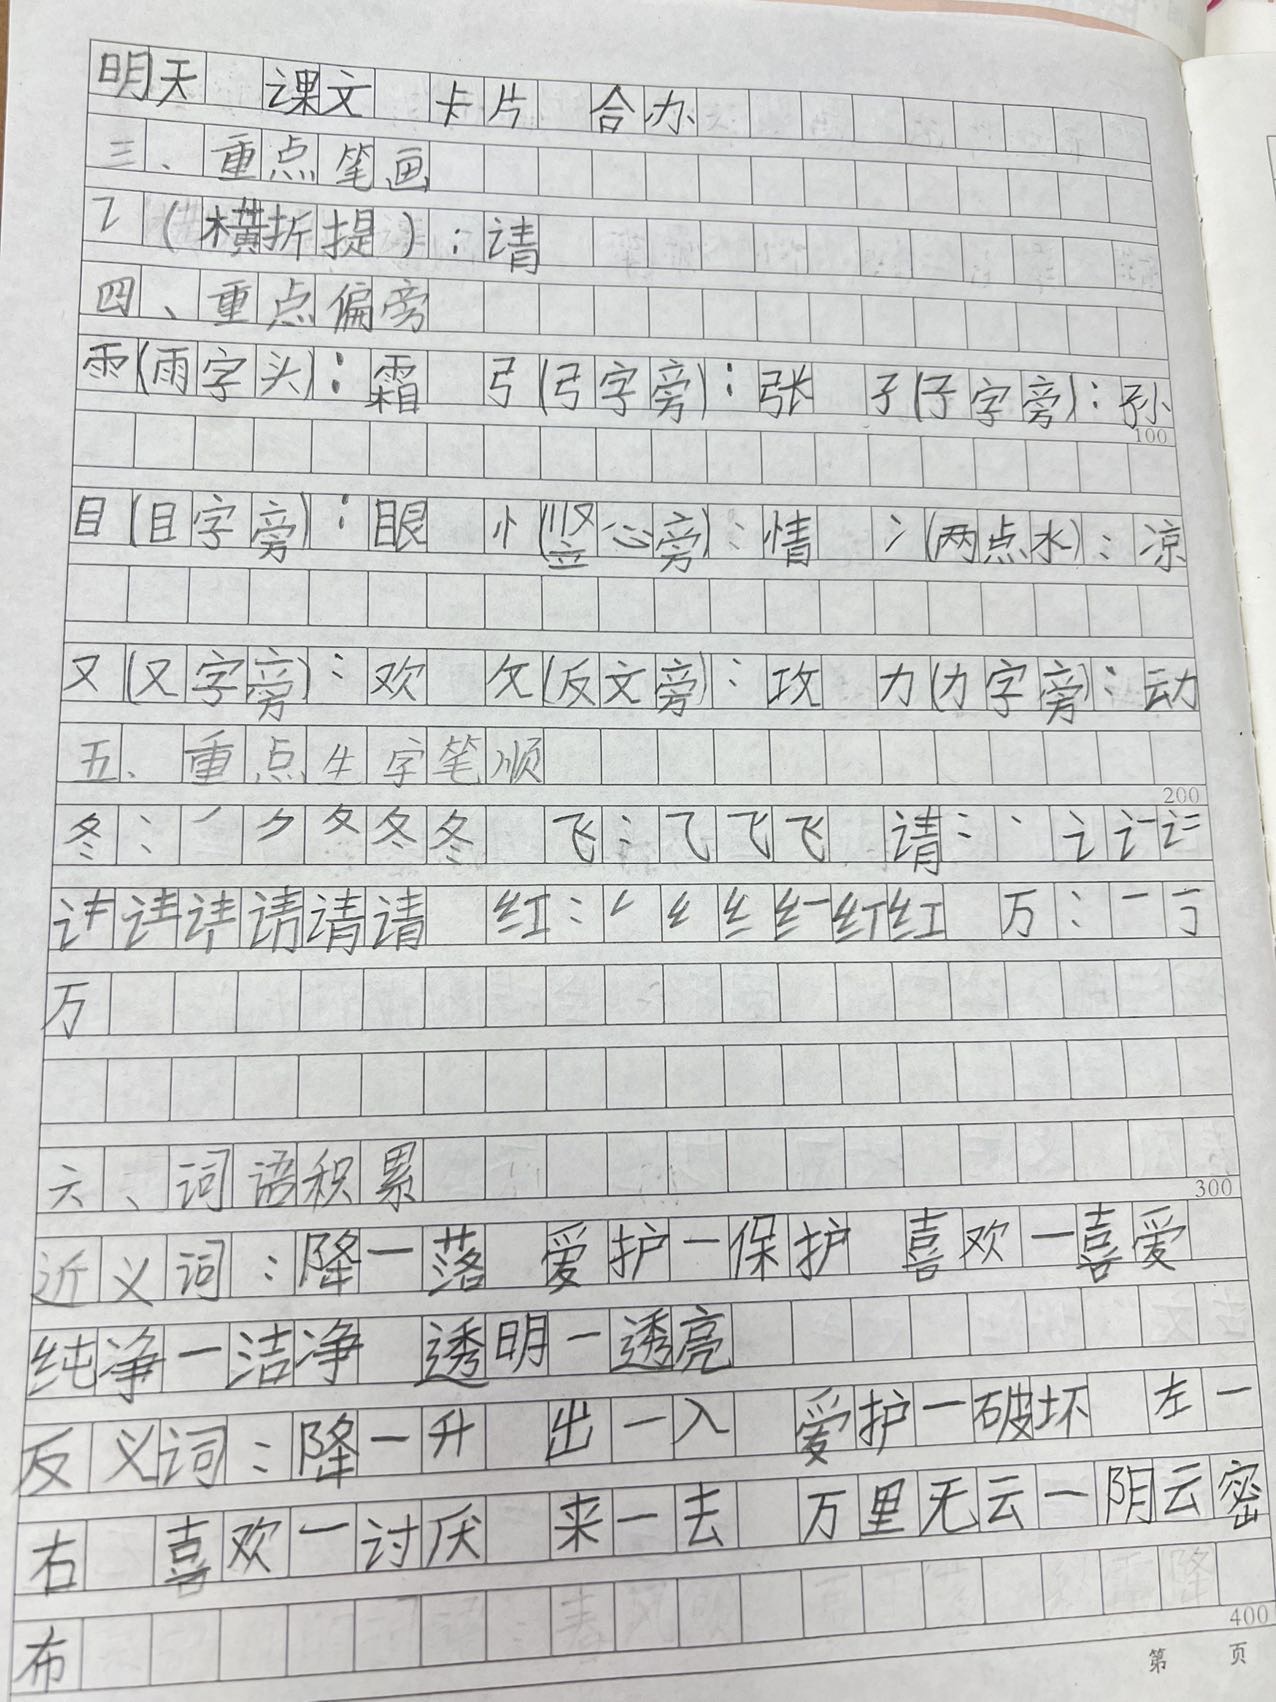 明天 课文 卡片 合办
三、重点笔画
㇊(横折提):请
四、重点偏旁
⻗(雨字头):霜 弓(弓字旁):张 子(子字旁):孙
100
目(目字旁):眼 忄(竖心旁):情 冫(两点水):凉
又(又字旁):欢 攵(反文旁):攻 力(力字旁):动
五、重点生字笔顺
200
冬:丿 ク 夂 冬 冬 飞:乁 飞 飞 请:丶 讠
请 红: 红 万:一 丁
万
六、词语积累
300
近义词:降一落 爱护一保护 喜欢一喜爱
纯净一洁净 透明一透亮
反义词:降一升 出一入 爱护一破坏 左一
右 喜欢一讨厌 来一去 万里无云一阴云密
布
400
第 页